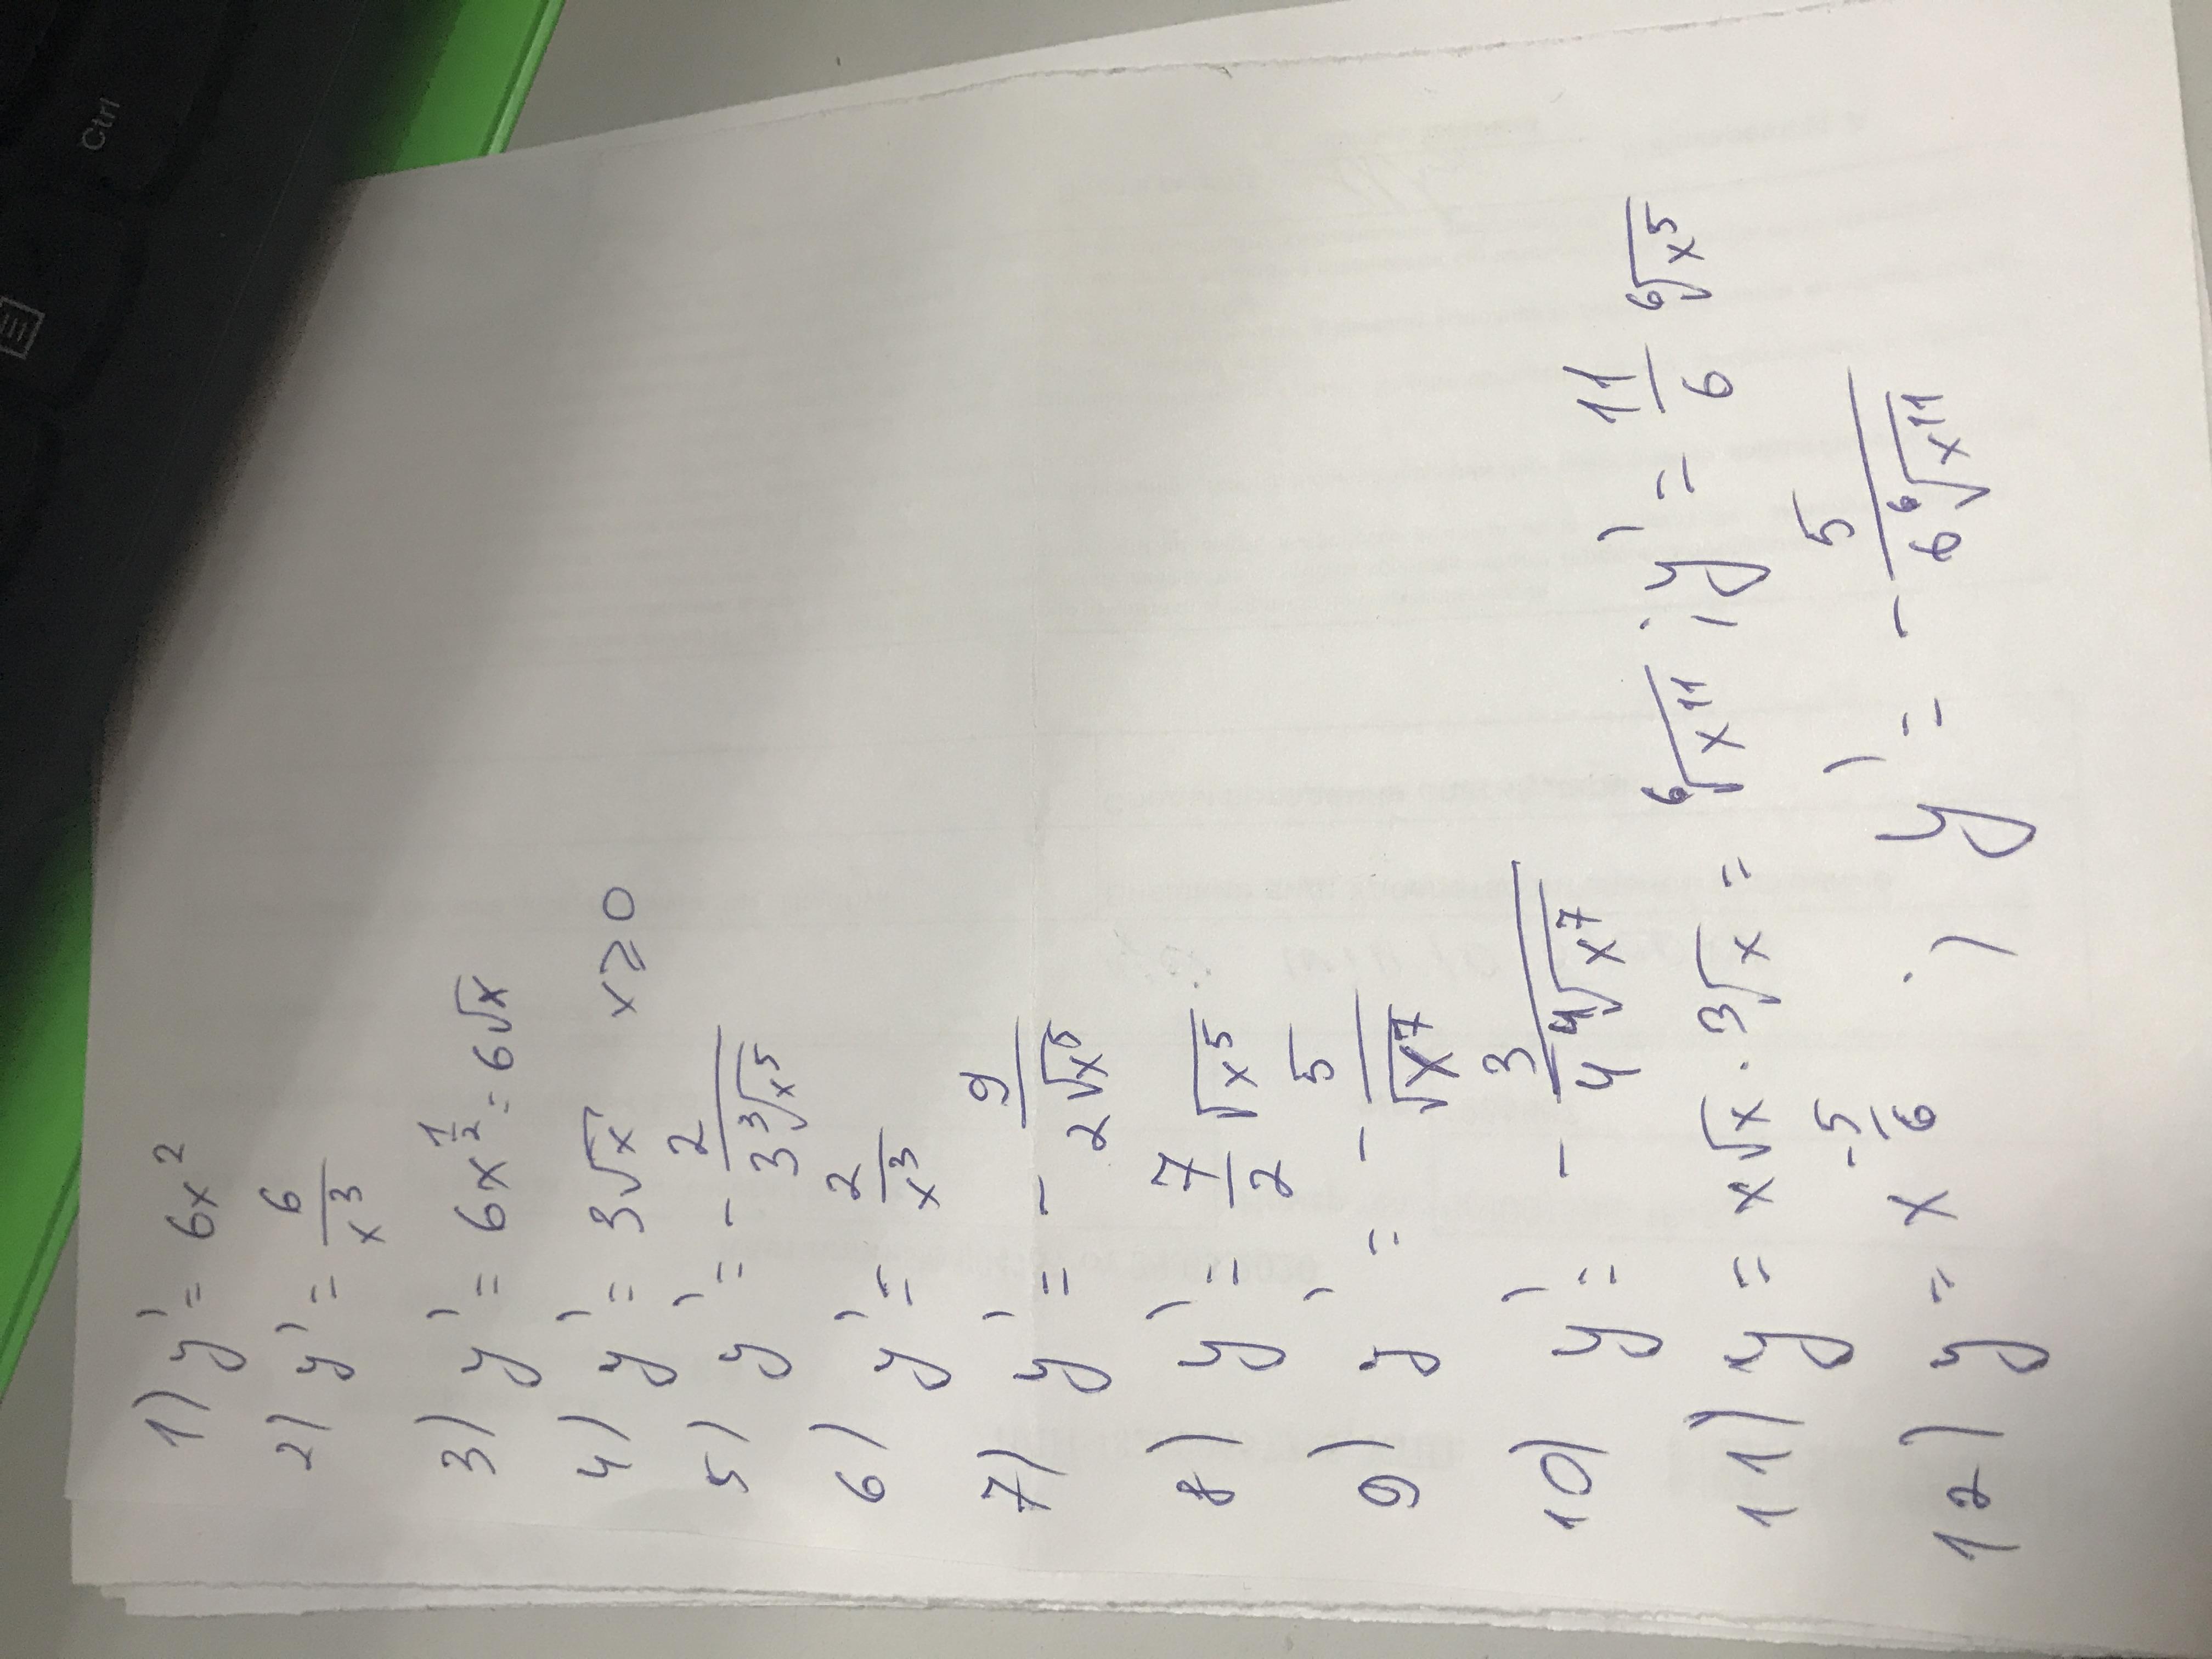 1) y' = 6x²
2) y' = 6/x³
3) y' = 6x^(1/2) = 6√x
4) y' = 3√x x ≥ 0
5) y' = - 2/(3∛x⁵)
6) y' = 2/x³
7) y' = - 9/(2√x⁵)
8) y' = 7/2 √x⁵
9) y' = - 5/√x⁷
10) y' = - 3/(4 ⁴√x⁷)
11) y = x√x · ³√x = ⁶√x¹¹ ; y' = 11/6 ⁶√x⁵
12) y = x^(-5/6) ; y' = - 5/(6 ⁶√x¹¹)
Ctrl